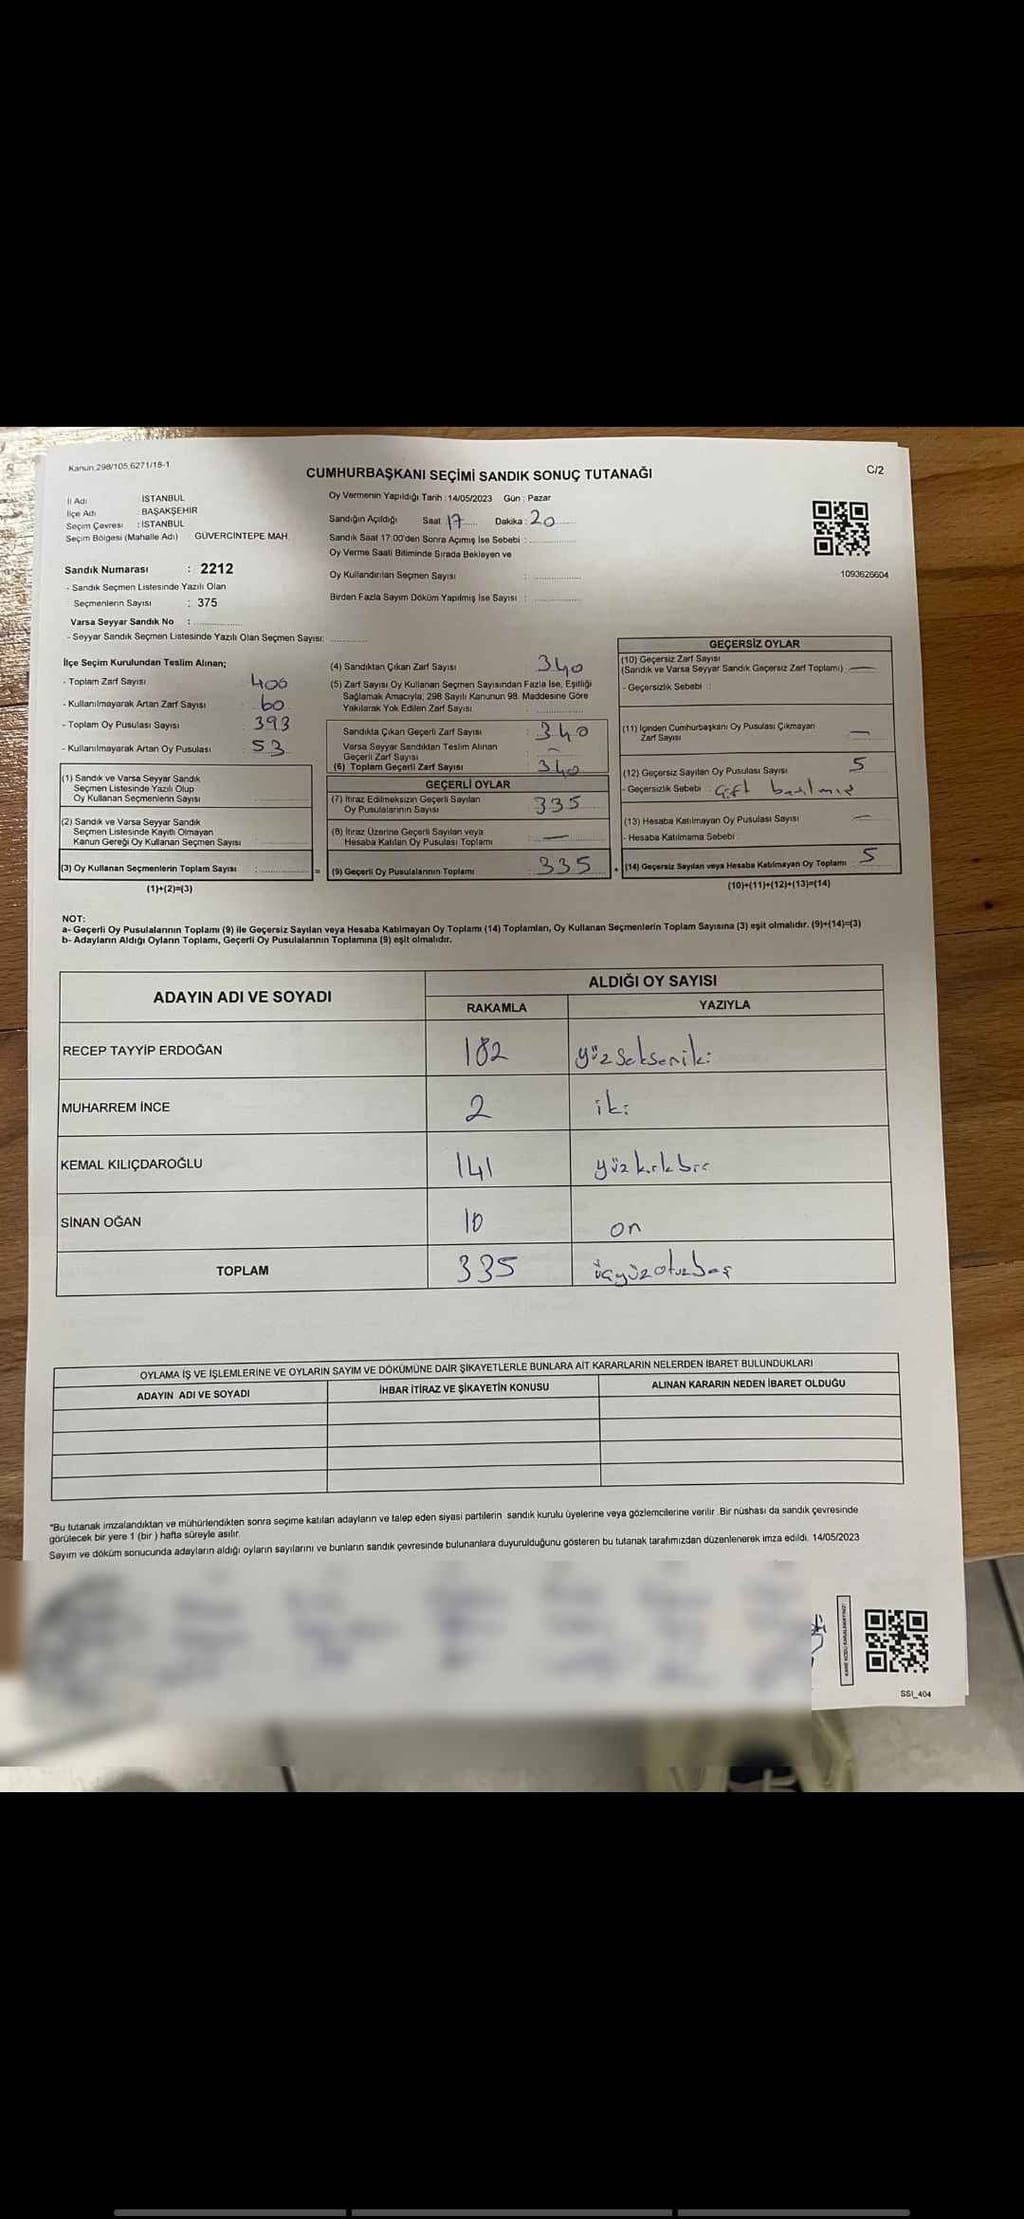 Kanun 298/105,6271/18-1
CUMHURBAŞKANI SEÇİMİ SANDIK SONUÇ TUTANAĞI
C/2
İl Adı İSTANBUL
İlçe Adı BAŞAKŞEHİR
Seçim Çevresi : İSTANBUL
Seçim Bölgesi (Mahalle Adı) GÜVERCİNTEPE MAH.
Oy Vermenin Yapıldığı Tarih : 14/05/2023 Gün : Pazar
Sandığın Açıldığı Saat 17 Dakika : 20
Sandık Saat 17:00'den Sonra Açımış İse Sebebi :
Oy Verme Saati Bitiminde Sırada Bekleyen ve
Oy Kullandırılan Seçmen Sayısı :
Birden Fazla Sayım Döküm Yapılmış İse Sayısı :
1093626604
Sandık Numarası : 2212
- Sandık Seçmen Listesinde Yazılı Olan
Seçmenlerin Sayısı : 375
Varsa Seyyar Sandık No :
- Seyyar Sandık Seçmen Listesinde Yazılı Olan Seçmen Sayısı:
İlçe Seçim Kurulundan Teslim Alınan;
- Toplam Zarf Sayısı 400
- Kullanılmayarak Artan Zarf Sayısı 60
- Toplam Oy Pusulası Sayısı 393
- Kullanılmayarak Artan Oy Pusulası 53
(1) Sandık ve Varsa Seyyar Sandık
Seçmen Listesinde Yazılı Olup
Oy Kullanan Seçmenlerin Sayısı
(2) Sandık ve Varsa Seyyar Sandık
Seçmen Listesinde Kayıtlı Olmayan
Kanun Gereği Oy Kullanan Seçmen Sayısı
(3) Oy Kullanan Seçmenlerin Toplam Sayısı :
(1)+(2)=(3)
(4) Sandıktan Çıkan Zarf Sayısı 340
(5) Zarf Sayısı Oy Kullanan Seçmen Sayısından Fazla İse, Eşitliği
Sağlamak Amacıyla; 298 Sayılı Kanunun 98. Maddesine Göre
Yakılarak Yok Edilen Zarf Sayısı :
Sandıkta Çıkan Geçerli Zarf Sayısı : 340
Varsa Seyyar Sandıktan Teslim Alınan
Geçerli Zarf Sayısı : –
(6) Toplam Geçerli Zarf Sayısı 340
GEÇERLİ OYLAR
(7) İtiraz Edilmeksizin Geçerli Sayılan
Oy Pusulalarının Sayısı 335
(8) İtiraz Üzerine Geçerli Sayılan veya
Hesaba Katılan Oy Pusulası Toplamı —
= (9) Geçerli Oy Pusulalarının Toplamı 335
GEÇERSİZ OYLAR
(10) Geçersiz Zarf Sayısı
(Sandık ve Varsa Seyyar Sandık Geçersiz Zarf Toplamı) —
- Geçersizlik Sebebi :
(11) İçinden Cumhurbaşkanı Oy Pusulası Çıkmayan
Zarf Sayısı —
(12) Geçersiz Sayılan Oy Pusulası Sayısı 5
- Geçersizlik Sebebi : Çift basılmış
(13) Hesaba Katılmayan Oy Pusulası Sayısı —
- Hesaba Katılmama Sebebi
+ (14) Geçersiz Sayılan veya Hesaba Katılmayan Oy Toplamı 5
(10)+(11)+(12)+(13)=(14)
NOT:
a- Geçerli Oy Pusulalarının Toplamı (9) ile Geçersiz Sayılan veya Hesaba Katılmayan Oy Toplamı (14) Toplamları, Oy Kullanan Seçmenlerin Toplam Sayısına (3) eşit olmalıdır. (9)+(14)=(3)
b- Adayların Aldığı Oyların Toplamı, Geçerli Oy Pusulalarının Toplamına (9) eşit olmalıdır.
ADAYIN ADI VE SOYADI
ALDIĞI OY SAYISI
RAKAMLA YAZIYLA
RECEP TAYYİP ERDOĞAN 182 yüzsekseniki
MUHARREM İNCE 2 iki
KEMAL KILIÇDAROĞLU 141 yüzkırkbir
SİNAN OĞAN 10 on
TOPLAM 335 üçyüzotuzbeş
OYLAMA İŞ VE İŞLEMLERİNE VE OYLARIN SAYIM VE DÖKÜMÜNE DAİR ŞİKAYETLERLE BUNLARA AİT KARARLARIN NELERDEN İBARET BULUNDUKLARI
ADAYIN ADI VE SOYADI İHBAR İTİRAZ VE ŞİKAYETİN KONUSU ALINAN KARARIN NEDEN İBARET OLDUĞU
"Bu tutanak imzalandıktan ve mühürlendikten sonra seçime katılan adayların ve talep eden siyasi partilerin sandık kurulu üyelerine veya gözlemcilerine verilir. Bir nüshası da sandık çevresinde
görülecek bir yere 1 (bir) hafta süreyle asılır.
Sayım ve döküm sonucunda adayların aldığı oyların sayılarını ve bunların sandık çevresinde bulunanlara duyurulduğunu gösteren bu tutanak tarafımızdan düzenlenerek imza edildi. 14/05/2023
SSI_404